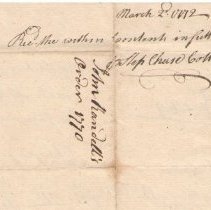 March 2 1772
Rec'd the within Contents in full
Step Chase Coll
John Randell's
Order 1770